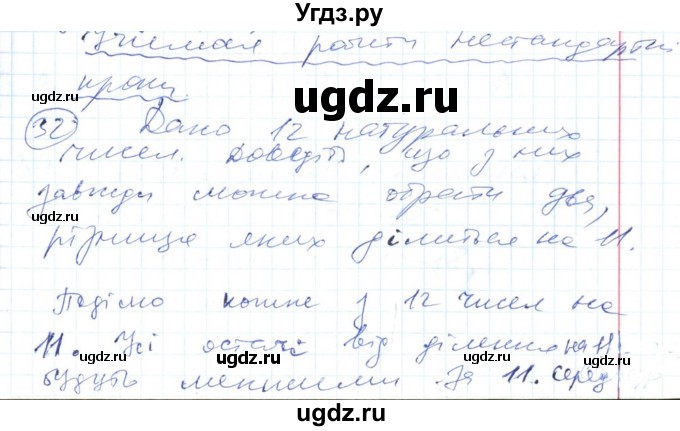 Угдз.ру
Учимося робити нестандартні
кроки.
32 Дано 12 натуральних
ugdz.ru ugdz.ru
чисел. Доведіть, що з них
завжди можна обрати два,
ugdz.ru
різниця яких ділиться на 11.
ugdz.ru
Поділімо кожне з 12 чисел на
11. Усі остачі від ділення на 11
ugdz.ru ugdz.ru
будуть меншими за 11. Серед
ugdz.ru